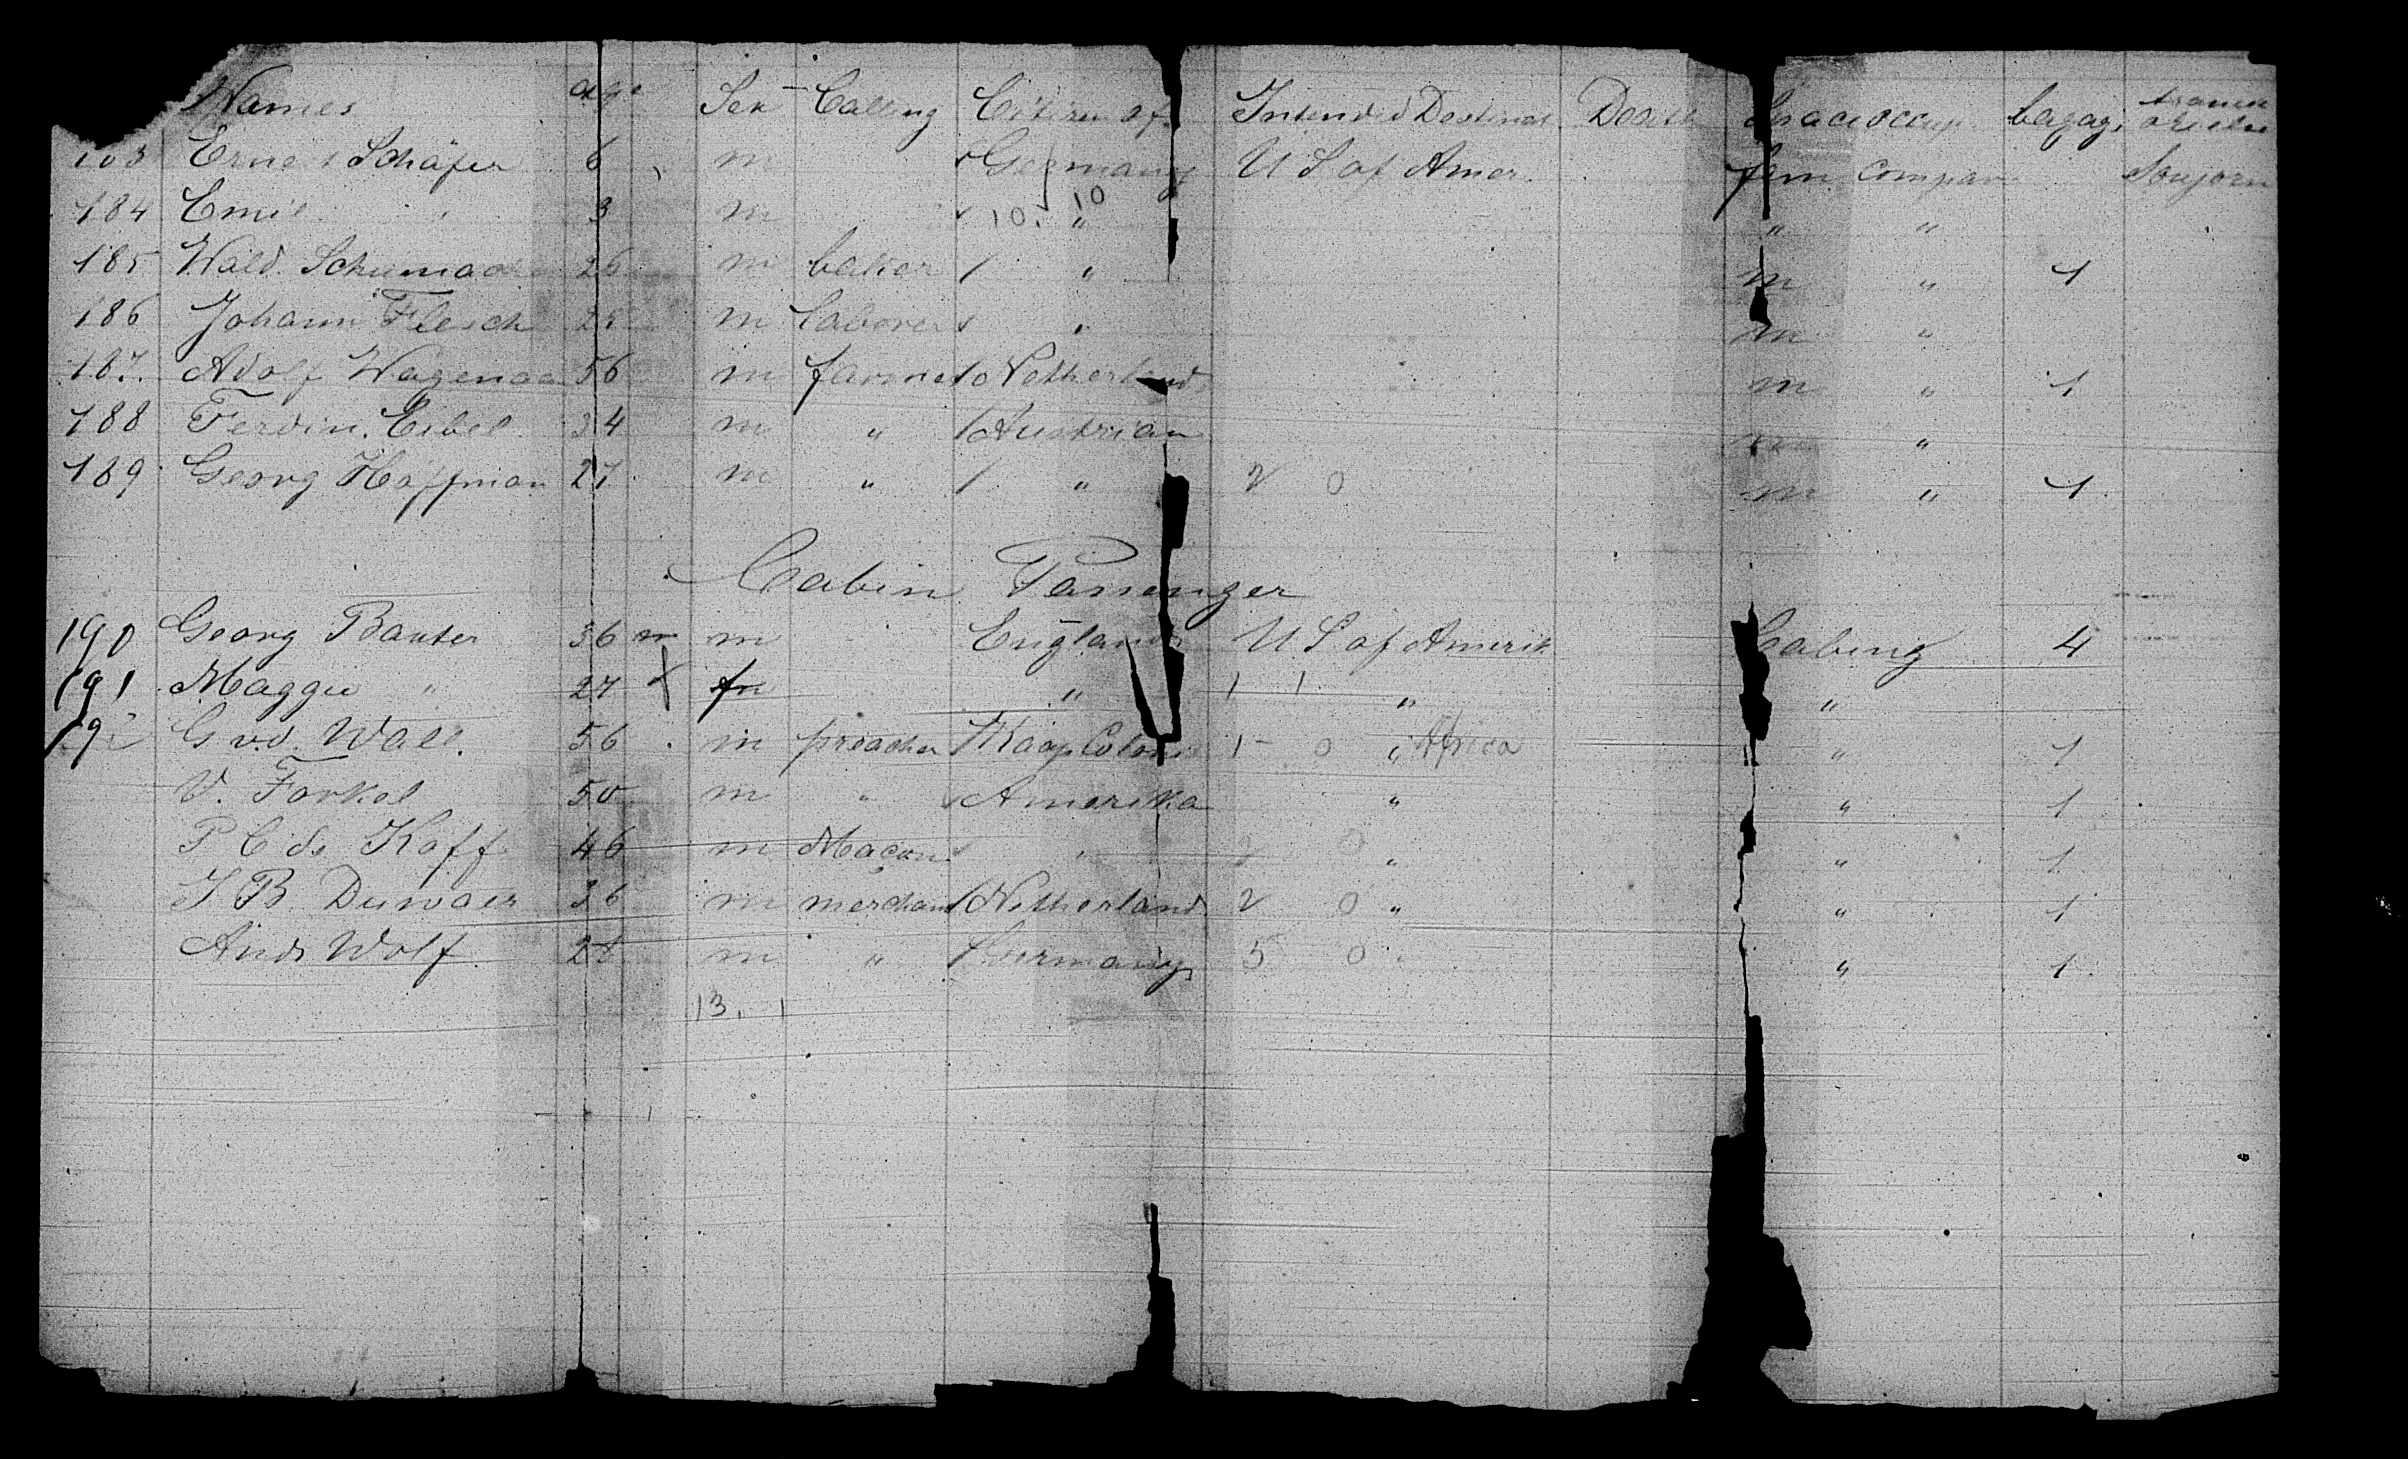 Names Age Sex Calling Citizen of Intended Destinat. Death Space occup. bagage
183 Ernest Schäfer 6 m Germany U S of Amer. fem. Compan Soujorn
184 Emil " 3 m 10. 10 " " "
185 Wald. Schumach 26 m baker / " m " 1
186 Johann Flesch m laborer " m "
187. Adolf Wagenaa 56 m farmer Netherlands m " 1
188 Ferdin. Eibel 34 m " / Austrian m "
189 Georg Hoffman 27 m " / " 2 0 m " 1
Cabin Passenger
190 Georg Banter 36 m m England U S of Amerik Cabing 4
191 Maggie " 27 X " 1 1 " "
192 G v.d. Wall. 56 m preacher / Kaap Colonie 1 - 0 " Africa " 1
V. Forkel 50 m " Amerika " " 1
P C de Kaff 46 m Maçon " 2 0 " " 1
J B Duwaer 36 m merchant / Netherland 2 0 " " 1
Andr Wolf 28 m " / Germany 5 0 " " 1
13. 1